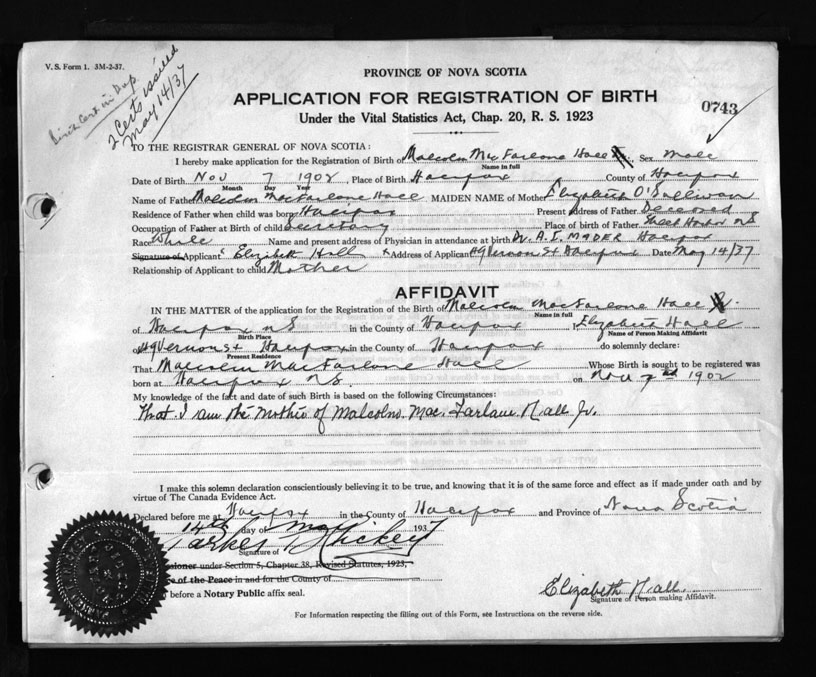 V. S. Form 1. 3M-2-37.
Birth Cert in Dup
2 Certs issued
May 14/37
PROVINCE OF NOVA SCOTIA
APPLICATION FOR REGISTRATION OF BIRTH
0743
Under the Vital Statistics Act, Chap. 20, R. S. 1923
TO THE REGISTRAR GENERAL OF NOVA SCOTIA:
I hereby make application for the Registration of Birth of Malcolm MacFarlane Hall Sex Male
Name in full
Date of Birth Nov 7 1902, Place of Birth Halifax County of Halifax
Month Day Year
Name of Father Malcolm MacFarlane Hall MAIDEN NAME of Mother Elizabeth O'Sullivan
Residence of Father when child was born Halifax Present address of Father Deceased
Occupation of Father at Birth of child Secretary Place of birth of Father Sheet Harbor NS
Race White Name and present address of Physician in attendance at birth Dr. A. I. MADER Halifax
Signature of Applicant Elizabeth Hall Address of Applicant 49 Vernon St Halifax Date May 14/37
Relationship of Applicant to child Mother
AFFIDAVIT
IN THE MATTER of the application for the Registration of the Birth of Malcolm MacFarlane Hall Jr.
Name in full
of Halifax NS in the County of Halifax I Elizabeth Hall
Birth Place Name of Person Making Affidavit
of 49 Vernon St Halifax in the County of Halifax do solemnly declare:
Present Residence
That Malcolm MacFarlane Hall Whose Birth is sought to be registered was
born at Halifax NS. on Nov 7 1902
My knowledge of the fact and date of such Birth is based on the following Circumstances:
That I am the Mother of Malcolm Mac Farlane Hall Jr.
I make this solemn declaration conscientiously believing it to be true, and knowing that it is of the same force and effect as if made under oath and by
virtue of The Canada Evidence Act.
Declared before me at Halifax in the County of Halifax and Province of Nova Scotia
14th day of May 193
Parker Hickey
Signature of
sioner under Section 5, Chapter 38, Revised Statutes, 1923,
e of the Peace in and for the County of
before a Notary Public affix seal.
Elizabeth Hall
Signature of Person making Affidavit.
For Information respecting the filling out of this Form, see Instructions on the reverse side.